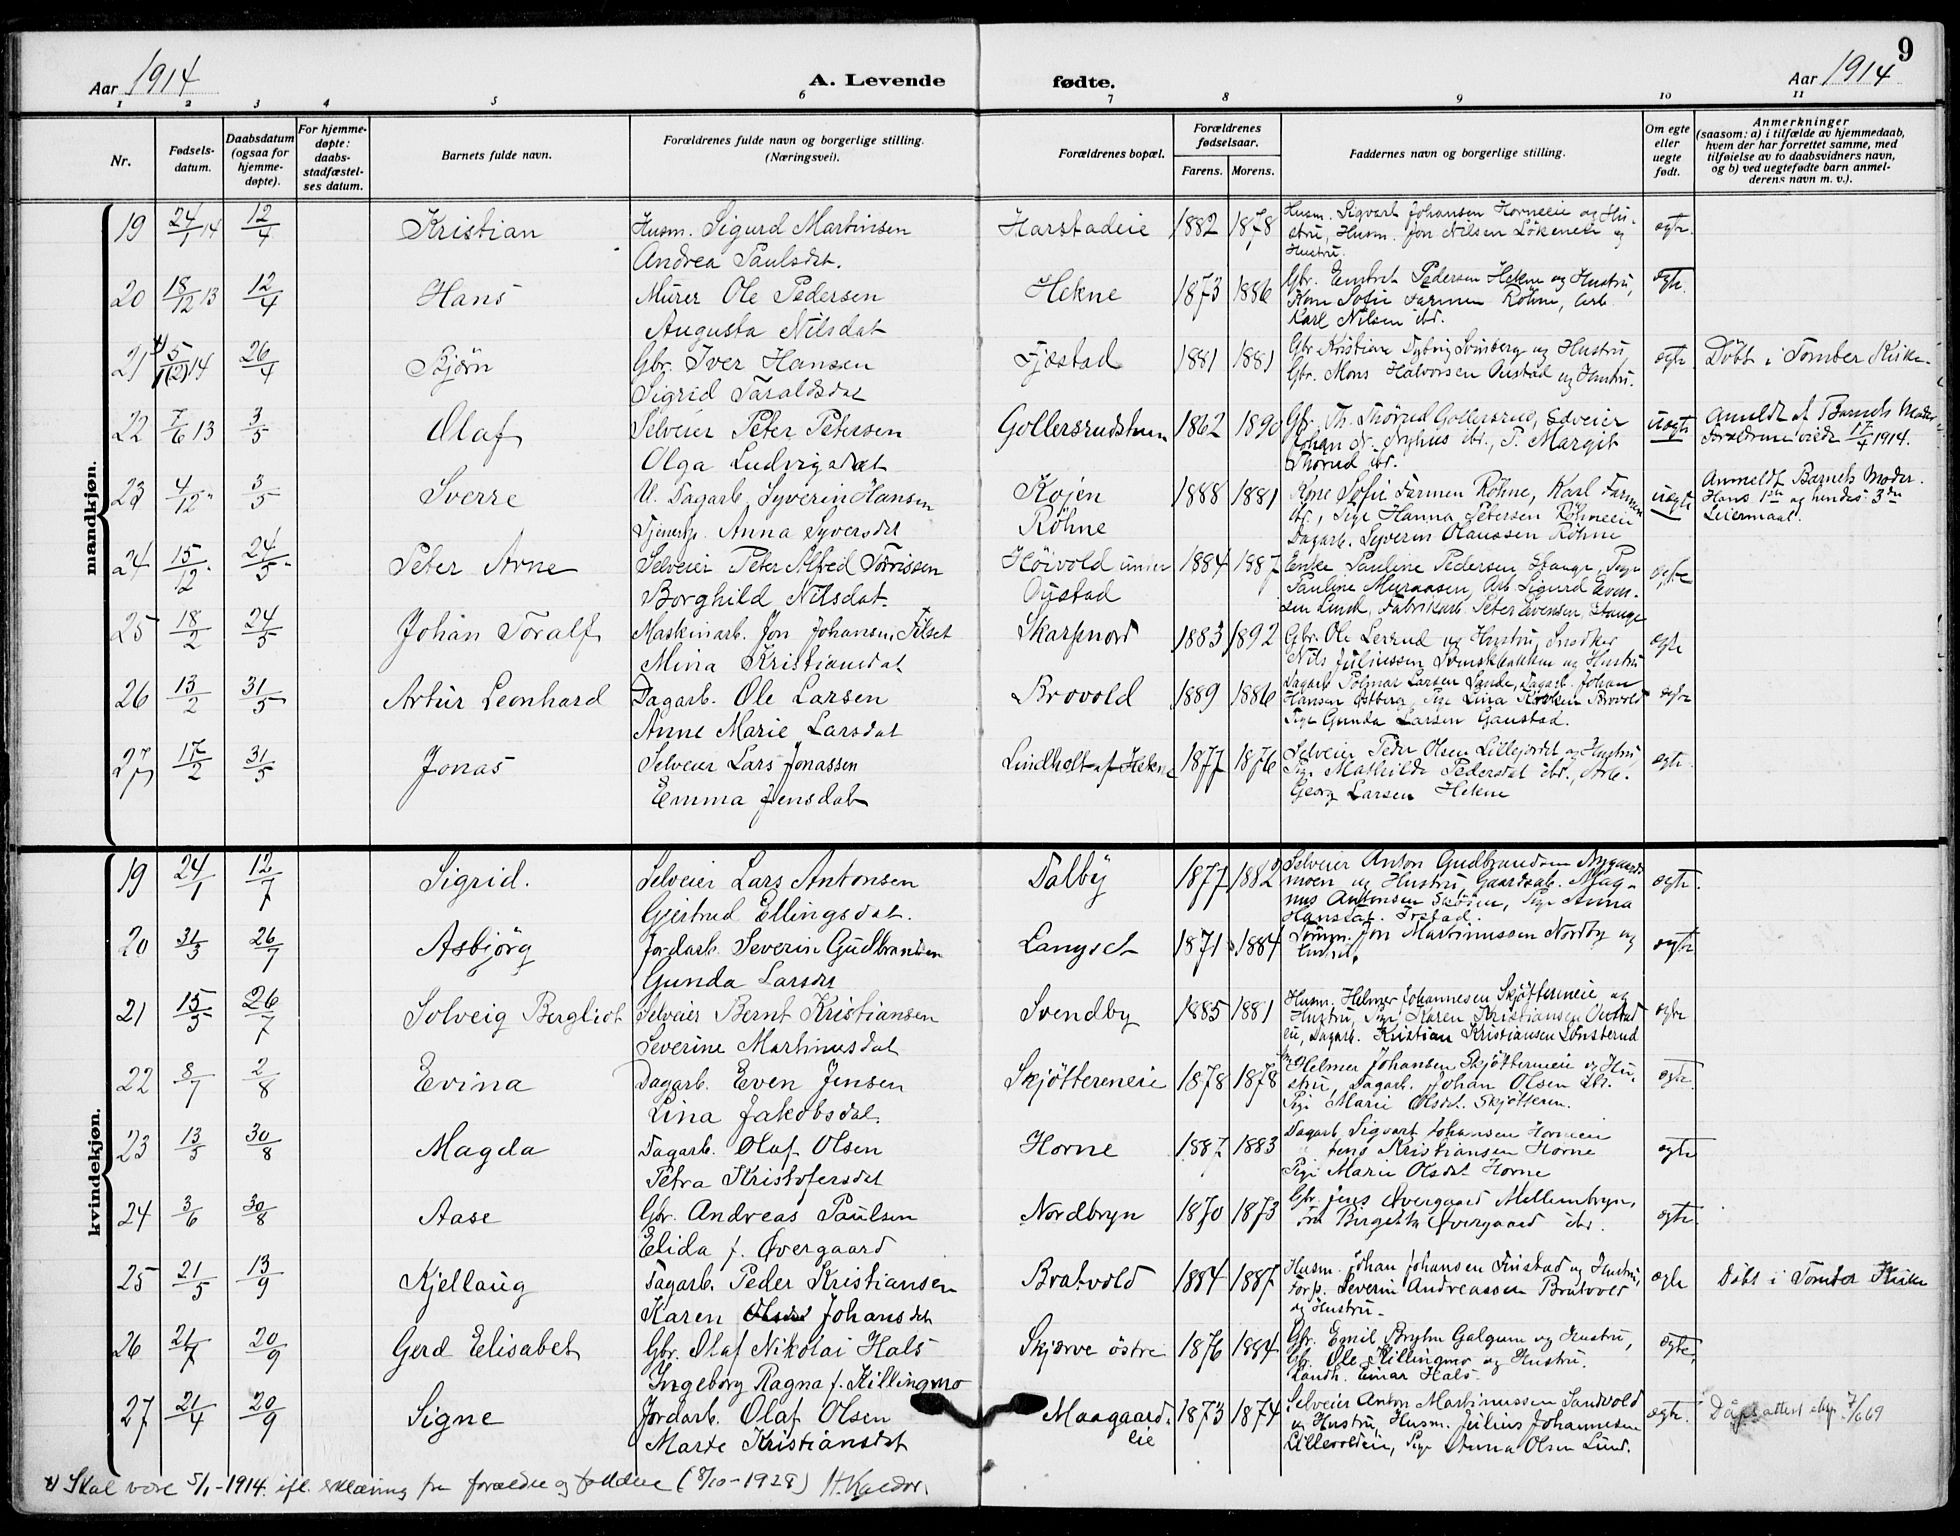 Aar 1914
A. Levende fødte.
Aar 1914
9
1 2 3 4 5 6 7 8 9 10 11
Nr.
Fødsels-datum.
Daabsdatum (ogsaa for hjemme-døpte).
For hjemme-døpte: daabs-stadfæstel-ses datum.
Barnets fulde navn.
Forældrenes fulde navn og borgerlige stilling. (Næringsvei).
Forældrenes bopæl.
Forældrenes fødselsaar.
Farens. Morens.
Faddernes navn og borgerlige stilling.
Om egte eller uegte født.
Anmerkninger (saasom: a) i tilfælde av hjemmedaab, hvem der har forrettet samme, med tilføielse av to daabsvidners navn, og b) ved uegtefødte barn anmel-derens navn m. v.).
mandkjøn.
19 24/1 14 12/4 Kristian Husm. Sigurd Martinsen Harstadeie 1882 1878 Husm. Sigvart Johansen Horneeie og Hu-
Andrea Paulsdat. stru, Husm. Jon Nilsen Lökeneie og egte.
Hustru.
20 18/12 13 12/4 Hans Murer Ole Pedersen Hekne 1873 1886 Gbr. Engbret Pedersen Hekne og Hustru, egte.
Augusta Nilsdat Kone Sofie Farmen Röhne, Arb.
Karl Nilsen ibd.
21 x) 5/1(2) 14 26/4 Bjørn Gbr. Iver Hansen Fjæstad 1881 1881 Gbr Kristian Dybvig og Hustru, egte Döbt i Tomter Kirke
Sigrid Taraldsdat Gbr. Mons Halvorsen Oustad og Hustru.
22 7/6 13 3/5 Olaf Selveier Peter Petersen 1862 1890 Gbr. Th. Thörud Gollersrud, Selveier uegte Anmeldt af Barnets Moder
Olga Ludvigsdat Johan Nyhus ibd., P. Margit Forældrene viede 17/4 1914.
Thörud ibd.
23 4/12 " 3/5 Sverre U. Dagarb. Syverin Hansen Kojen 1888 1881 Kone Sofie Farmen Röhne, Karl Farmen uegte Anmeldt Barnets Moder.
Tjenestp. Anna Syversdat Röhne ibd., Pige Hanna Petersen Röhneeie Hans 1ste og hendes 3die
Dagarb. Syverin Olaussen Röhne Leiermaal.
24 15/12 " 24/5 Peter Arne Selveier Peter Alfred Torrissen Höivold under 1884 1887 Enke Pauline Pedersen Stange, Pige egte
Borghild Nilsdat. Oustad Pauline Muraasen, Arb. Sigurd Even-
sen Lund, Fabrikarb. Peter Evensen, Stange
25 18/2 24/5 Johan Toralf Maskinarb. Jon Johansen Tilset Skarpnord 1883 1892 Gbr. Ole Lerrud og Hustru, Snedker egte
Mina Kristiansdat Nils Juliussen Svenskbakken og Hustru
26 13/2 31/5 Artur Leonhard Dagarb. Ole Larsen Brovold 1889 1886 Dagarb. Larsen Sande, Dagarb. Johan egte
Anne Marie Larsdat Hansen Östberg, Pige Lina Brovold
Pige Gunda Larsen Gaustad.
27 17/2 31/5 Jonas Selveier Lars Jonassen Lindholt af Hekne 1877 1876 Selveier Peder Olsen Lillejordet og Hustru, egte.
Emma Jensdat Pige Mathilde Pedersdat ibd., Arb.
Georg Larsen Hekne
kvindekjøn.
19 24/1 12/7 Sigrid. Selveier Lars Antonsen Dalby 1877 1882 Selveier Anton Gudbrandsen Nygaards- egte.
Gjertrud Ellingsdat. moen og Hustru, Gaardarb. Mag-
nus Antonsen Skören, Pige Anna
Hansdat. Irstad.
20 31/3 26/7 Asbjörg Jordarb. Severin Gudbrandsen Langset 1871 1884 Tömm. Jon Martinussen Nordby og egte
Gunda Larsdr Hustru.
21 15/5 26/7 Solveig Bergliot Selveier Bernt Kristiansen Svendby 1885 1881 Husm. Helmer Johannesen Skjøttereneie og egte
Severine Martinusdat Hustru, Pige Karen Kristiansen Oustad-
eie, Dagarb. Kristian Kristiansen Lönsterud
22 8/7 2/8 Evina Dagarb. Even Jensen Skjöttereneie 1878 1878 Helmer Johansen Skjöttereneie og Hu- egte.
Lina Jakobsdat. stru, Dagarb. Johan Olsen ibd.
Pige Marie Olsdat. Skjötteren.
23 13/5 30/8 Magda Dagarb. Olaf Olsen Horne 1887 1883 Dagarb Sigvart Johansen Horneeie egte
Petra Kristofersdat " Jens Kristiansen Horne
Pige Marie Olsdat Horne
24 3/6 30/8 Aase Gbr. Andreas Paulsen Nordbryn 1870 1873 Gbr. Jens Øvergaard Mellembryn, egte.
Elida f. Øvergaard Birgitte Øvergaard ibd.
25 21/5 13/9 Kjellaug Dagarb. Peder Kristiansen Bratvold 1884 1887 Husm. Johan Johansen Finstad og Hustru, egte Döbt i Tomter Kirke
Karen Johansdat Forp. Severin Andreassen Bratvold
og Hustru.
26 21/7 20/9 Gerd Elisabet Gbr. Olaf Nikolai Hals Skjærve östre 1876 1884 Gbr. Emil Bryhn Galgum og Hustru, egte.
Ingeborg Ragna f. Killingmo Gbr. Ole Killingmo og Hustru.
Landh. Einar Hals.
27 21/4 20/9 Signe Jordarb. Olaf Olsen Maagaard- 1873 1874 Selveier Anton Martinussen Sandvold egte. Dåpsattest eksp. 7/6 69
Marte Kristiansdat eie og Hustru, Husm. Julius Johannesen
Lillevoldeie, Pige Anna Olsen Lund.
x) Skal være 5/1-1914. ifl. erklæring fra forældre og faddere (8/10-1928)